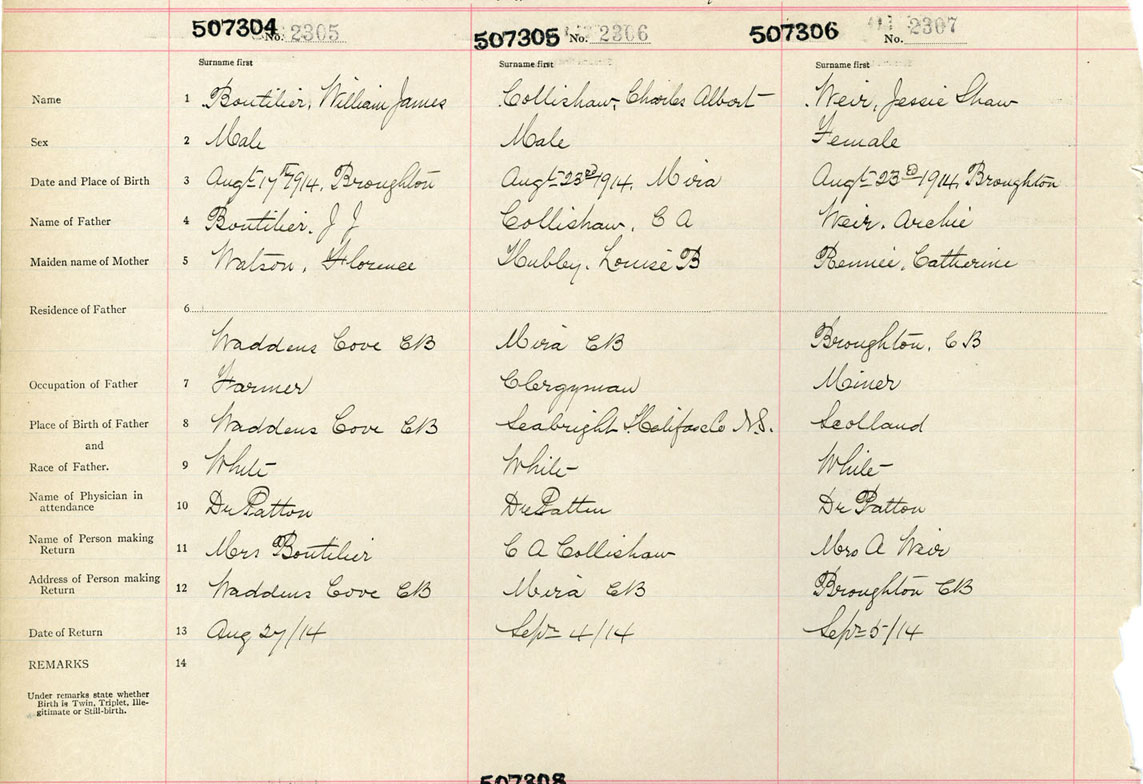 507304 No. 2305 507305 No. 2306 507306 No. 2307
Surname first Surname first Surname first
Name 1 Boutilier, William James Collishaw, Charles Albert Weir, Jessie Shaw
Sex 2 Male Male Female
Date and Place of Birth 3 Augt 17th 1914, Broughton Augt 23rd 1914, Mira Augt 23rd 1914, Broughton
Name of Father 4 Boutilier, J J Collishaw, C A Weir, Archie
Maiden name of Mother 5 Watson, Florence Hubley, Louise B Rennie, Catherine
Residence of Father 6
Waddens Cove CB Mira CB Broughton, C B
Occupation of Father 7 Farmer Clergyman Miner
Place of Birth of Father 8 Waddens Cove CB Seabright Halifax Co N.S. Scotland
and
Race of Father. 9 White White White
Name of Physician in
attendance 10 Dr Patton Dr Patton Dr Patton
Name of Person making
Return 11 Mrs Boutilier C A Collishaw Mrs A Weir
Address of Person making
Return 12 Waddens Cove CB Mira CB Broughton CB
Date of Return 13 Aug 27/14 Sept 4/14 Sept 5/14
REMARKS 14
Under remarks state whether
Birth is Twin, Triplet, Ille-
gitimate or Still-birth.
507308